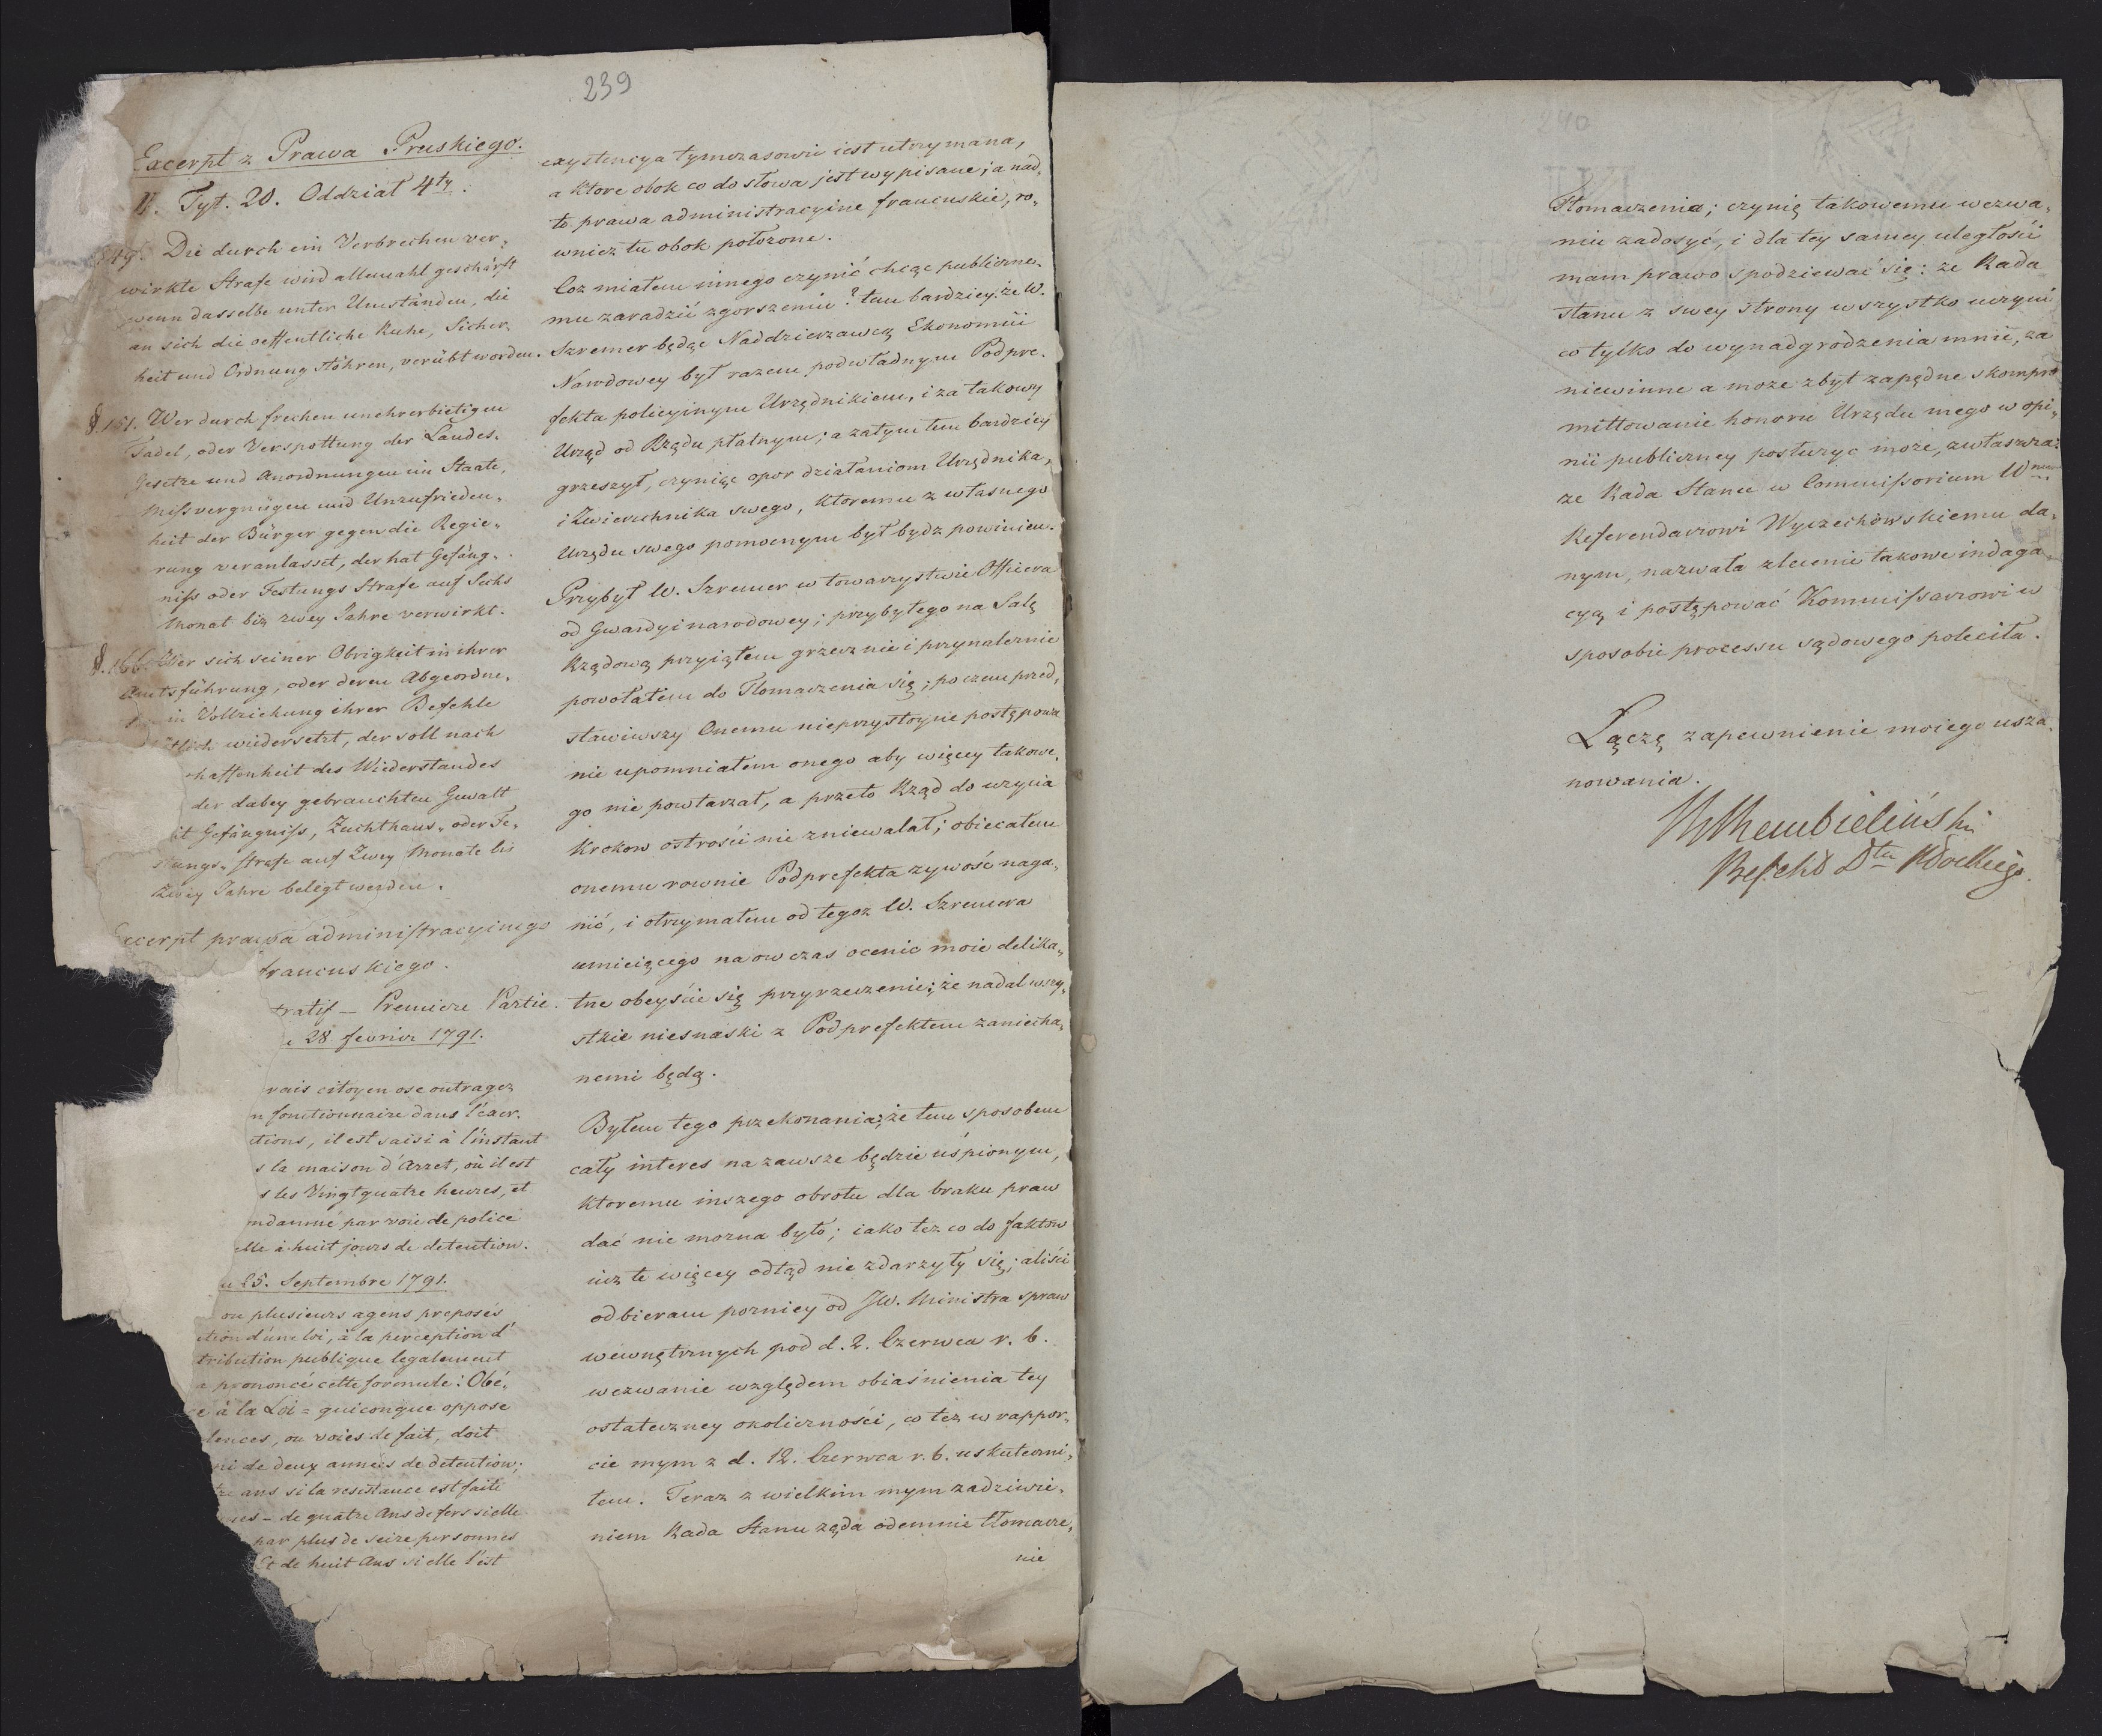 239
Excerpt z Prawa Pruskiego.
II. Tyt. 20. Oddział 4ty.
149. Die durch ein Verbrechen ver„
wirkte Strafe wird allemahl geschärft
wenn dasselbe unter Umständen, die
an sich die oeffentliche Ruhe, Sicher„
heit und Ordnung stöhren, verübt worden.
§. 151. Wer durch frechen unehrerbietigen
Tadel, oder Verspottung der Landes„
Gesetze und Anordnungen im Staate,
Missvergnügen und Unzufrieden„
heit der Bürger gegen die Regie„
rung veranlasset, der hat Gefäng„
niss oder Festungs Strafe auf Sechs
Monat bis zwey Jahre verwirkt.
§. 166. Wer sich seiner Obrigkeit in ihrer
Amtsführung, oder deren Abgeordne„
in Vollziehung ihrer Befehle
tlich wiedersetzt, der soll nach
haffenheit des Wiederstandes
der dabey gebrauchten Gewalt
it Gefängniss, Zuchthaus„ oder Fe„
stungs„ strafe auf Zwey Monate bis
Zwey Jahre belegt werden.
Excerpt prawa administracyinego
francuskiego.
tratif — Premiere Partie.
28 fevrier 1791.
vais citoyen ose outrager
n fonctionnaire dans l'exer„
ctions, il est saisi à l'instant
s la maison d'Arret, où il est
s les Vingt quatre heures, et
ndamné par voie de police
elle à huit jours de detention.
u 25. Septembre 1791.
ou plusieurs agens preposés
ution d'une loi, à la perception d'
tribution publique legalement
prononcé cette formule: Obé„
e à la Loi = quiconque oppose
lences, ou voies de fait, doit
ni de deux années de detention;
tre ans si la resistance est faite
mes — de quatre Ans de fers si elle
par plus de seize personnes
Et de huit Ans si elle l'est
exystencya tymczasowie iest utrzymana,
a ktore obok co do słowa jest wypisane; a nad„
to prawa administracyine francuskie, ro„
wnież tu obok położone.
Coż miałem innego czynić chcąc publiczne„
mu zaradzić zgorszeniu? tem bardziey: że W.
Szremer będąc Naddzierzawcą Ekonomii
Narodowey był razem podwładnym Podpre„
fekta policyinym Urzędnikiem, i za takowy
Urząd od Rządu płatnym; a zatym tem bardziey
grzeszył, czyniąc opor działaniom Urzędnika,
i Zwierzchnika swego, ktoremu z własnego
Urzędu swego pomocnym był bydz powinien.
Przybył W. Szremer w towarzystwie Officera
od Gwardyi narodowey; przybyłego na Salę
Rządową przyiąłem grzecznie i przynależnie
powołałem do Tłomaczenia się; po czem przed„
stawiwszy Onemu nieprzystoyne postępowa
nie upomniałem onego aby więcey takowe„
go nie powtarzał, a przeto Rząd do uzycia
krokow ostrości nie zniewalał; obiecałem
onemu rownie Podprefekta zywość naga„
nić, i otrzymałem od tegoz W. Szremera
umieiącego na ow czas ocenić moie delika„
tne obeyście się przyrzeczenie; że nadal wszy„
stkie niesnaski z Podprefektem zaniecha„
nemi będą.
Byłem tego przekonania; że tem sposobem
cały interes na zawsze będzie uśpionym,
ktoremu inszego obrotu dla braku praw
dać nie mozna było; iako tez co do faktow
iuz te więcey odtąd nie zdarzyły się; aliści
odbieram pozniey od JW. Ministra spraw
wewnętrznych pod d. 2. Czerwca r. b.
wezwanie względem obiaśnienia tey
ostateczney okoliczności, co tez w rappor„
cie mym z d. 12. Czerwca r. b. uskuteczni„
łem. Teraz z wielkim mym zadziwie„
niem Rada Stanu ząda odemnie tłomacze„
nie
240
Tłomaczenia; czynię takowemu wezwa„
niu zadosyć, i dla tey samey uległości
mam prawo spodziewać się: ze Rada
Stanu z swey strony wszystko uczyni
co tylko do wynadgrodzenia mnie, za
niewinne a moze zbyt zapędne skompro
mittowanie honoru Urzędu mego w opi„
nii publiczney posłuzyc może, zwłaszcza:
ze Rada Stanu w Commissorium Wmu
Referendarzowi Wyczechowskiemu da„
nym, nazwała zlecenie takowe indaga„
cyą i postępować Kommissarzowi w
sposobie processu sądowego poleciła.
Łączę zapewnienie moiego usza„
nowania.
Rembieliński
Prefekt Dtu Płockiego.